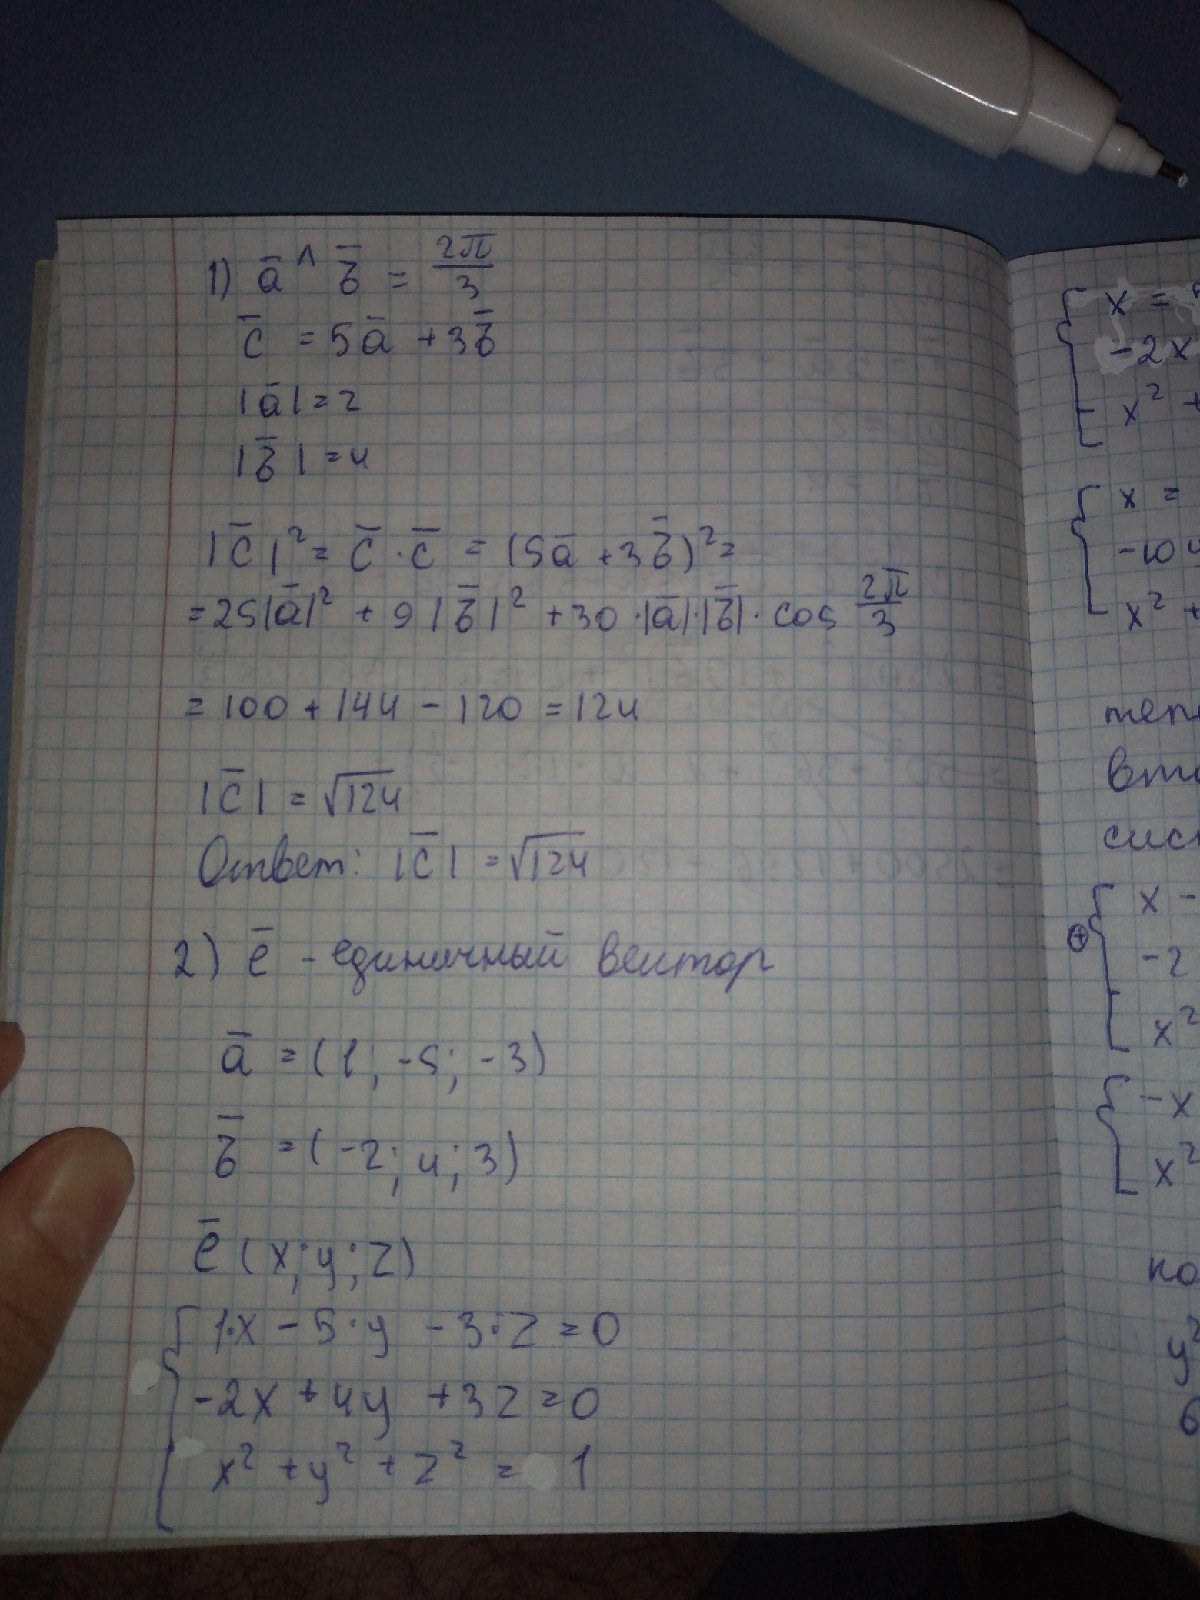 1) a̅ ^ b̅ = 2π/3
c̅ = 5a̅ + 3b̅
|a̅| = 2
|b̅| = 4
|c̅|² = c̅ · c̅ = (5a̅ + 3b̅)² =
= 25|a̅|² + 9|b̅|² + 30·|a̅|·|b̅|·cos 2π/3
= 100 + 144 - 120 = 124
|c̅| = √124
Ответ: |c̅| = √124
2) e̅ - единичный вектор
a̅ = (1; -5; -3)
b̅ = (-2; 4; 3)
e̅ (x; y; z)
1·x - 5·y - 3·z = 0
-2x + 4y + 3z = 0
x² + y² + z² = 1
x =
-2x
x² +
x =
-10y
x² +
x -
-2
x²
-x
x²
y²
6